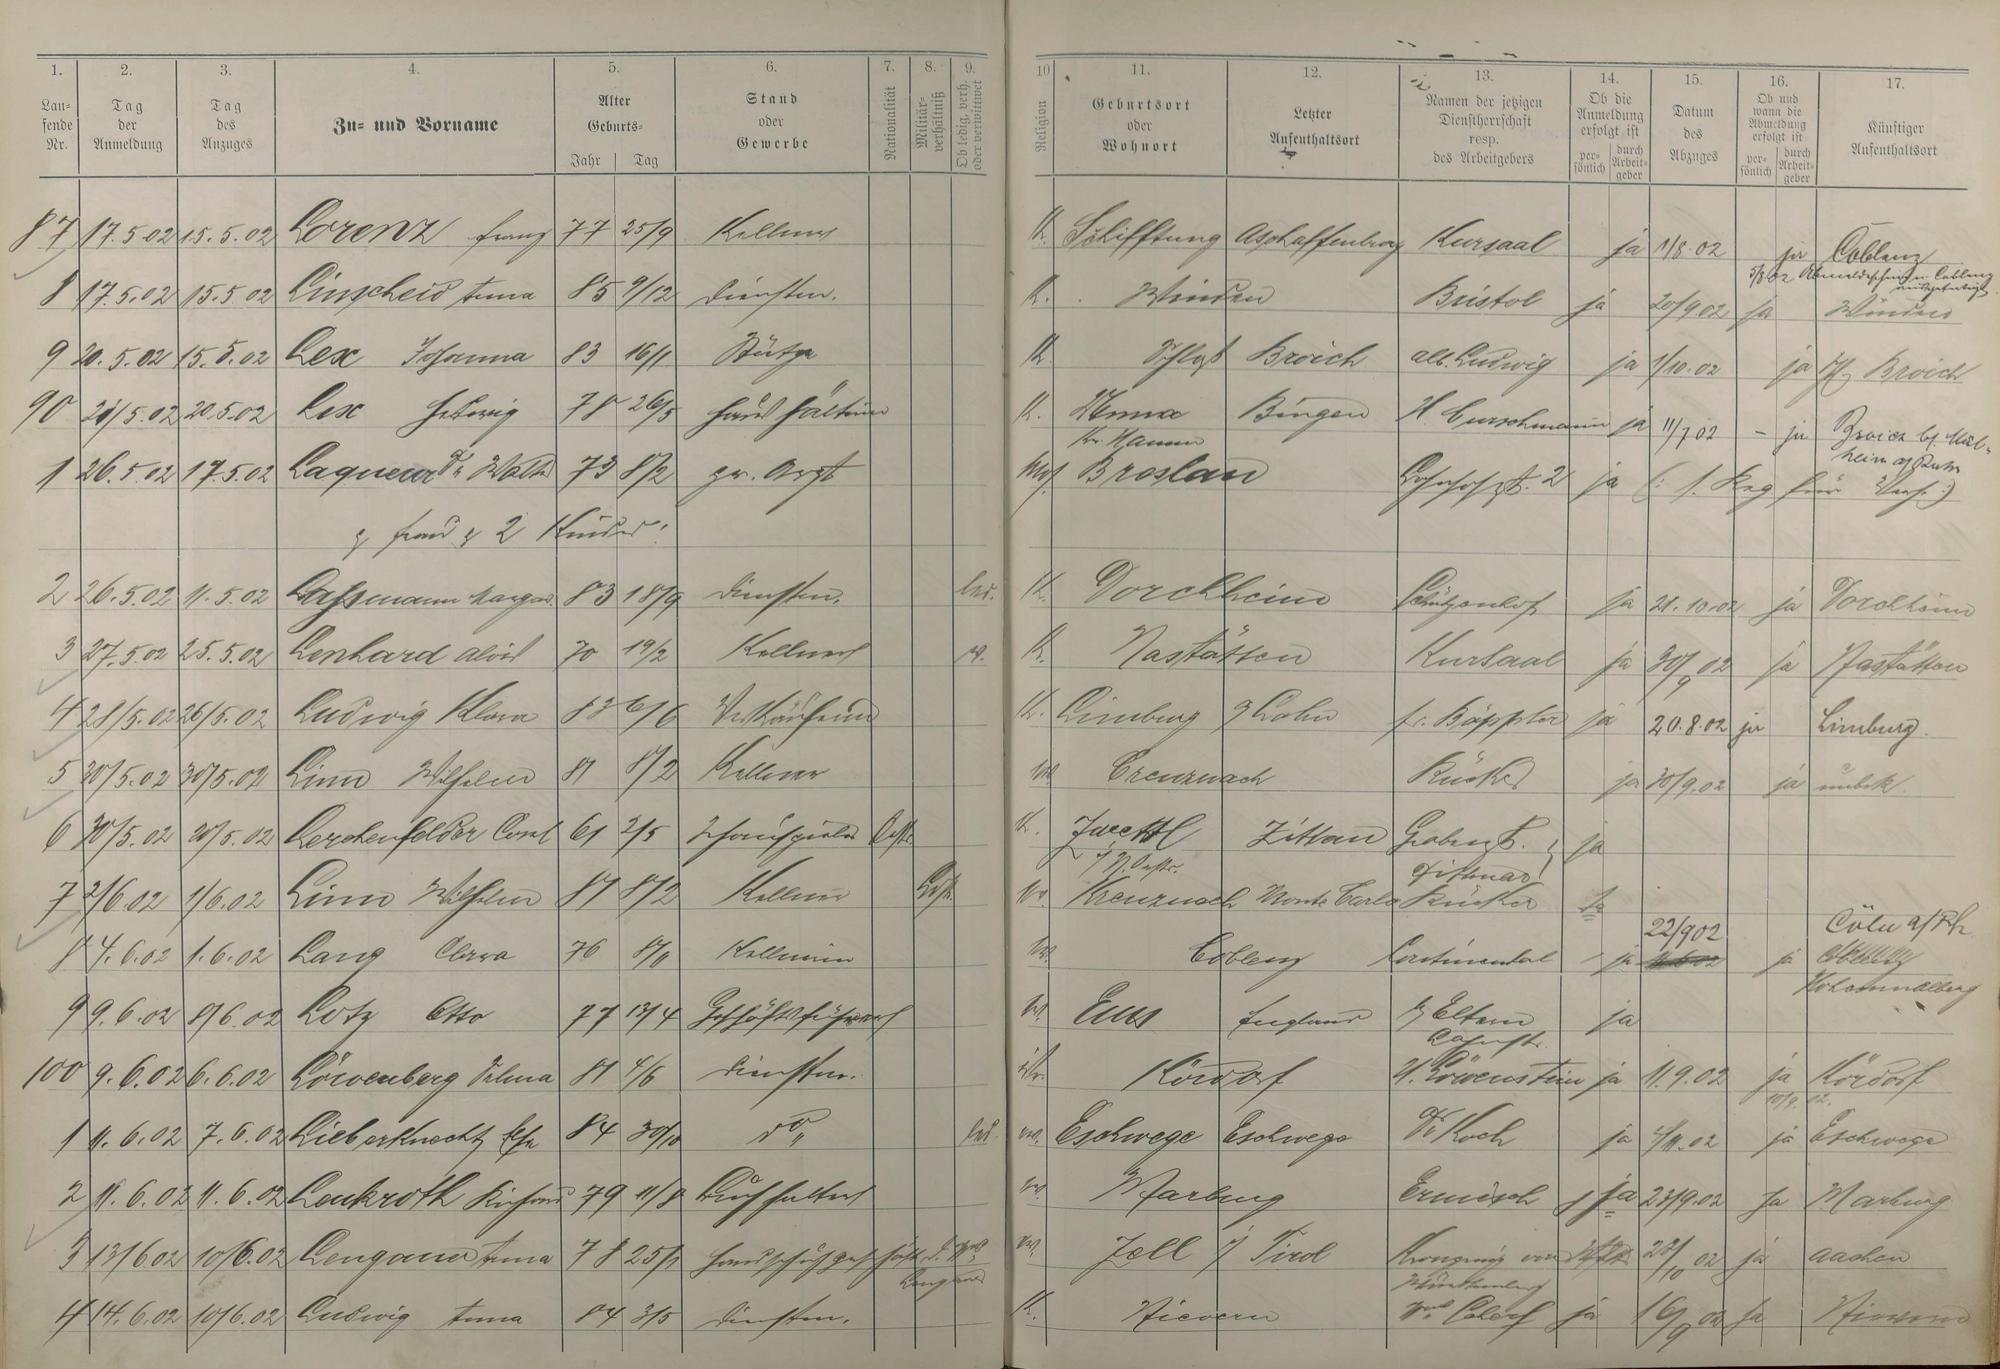 1. 2. 3. 4. 5. 6. 7. 8. 9. 10 11. 12. 13. 14. 15. 16. 17.
Lau-
fende
Nr.
Tag
der
Anmeldung
Tag
des
Anzuges
Zu- und Vorname
Alter
Geburts-
Jahr Tag
Stand
oder
Gewerbe
Nationalität
Militär-
verhältniß
Ob ledig, verh.
oder verwittwet
Religion
Geburtsort
oder
Wohnort
Letzter
Aufenthaltsort
Namen der jetzigen
Dienstherrschaft
resp.
des Arbeitgebers
Ob die
Anmeldung
erfolgt ist
per-
sönlich
durch
Arbeit-
geber
Datum
des
Abzuges
Ob und
wann die
Abmeldung
erfolgt ist
per-
sönlich
durch
Arbeit-
geber
Künftiger
Aufenthaltsort
87 17.5.02 15.5.02 Lorenz Franz 77 25/9 Kellner K. Schifftung Aschaffenburg Kursaal ja 1/8.02 ja Coblenz
8 17.5.02 15.5.02 Linscheid Anna 85 9/12 Dienstm. K. Winden Bristol ja 20/9 02 ja Winden
9 20.5.02 15.5.02 Lex Johanna 83 16/1 Stütze K. Broich Ludwig ja 1/10.02 ja Broich
90 21/5.02 20.5.02 Lex Hedwig 78 26/5 Haushälterin K. Unna Bingen H. Curschmann ja 11/7 02 - ja Broich b/ Mül-
Kr. Hamm heim a/ Ruhr
1 26.5.02 17.5.02 Laqueur Dr. Walth 73 8/2 pr. Arzt mos. Breslau 2 ja
z Frau z 2 Kinder
2 26.5.02 11.5.02 Lassmann Margar. 83 18/9 Dienstm. led. K. Dorchheim Schützenhof ja 21.10.02 ja Dorchheim
3 27.5.02 25.5.02 Lenhard Alois 70 19/2 Kellner v. K. Nastätten Kursaal ja 30/9 02 ja Nastätten
4 28/5.02 26/5.02 Ludwig Klara 83 6/6 Verkäuferin K. Limburg a/ Lahn Fr. Bäppler ja 20.8.02 ja Limburg.
5 30/5.02 30/5.02 Linn Wilhelm 81 8/2 Kellner Creuznach Rücker ja 30/9.02 ja unbek.
6 30/5.02 30/5.02 Lerchenfelder Carl 61 2/5 Schauspieler Oestr. K. Zwettl Zittau ja
7 2/6.02 1/6.02 Linn Wilhelm 81 8/2 Kellner Kreuznach Monte Carlo Rücker ja
22/9 02 Cöln a/Rh
8 4.6.02 1.6.02 Lang Clara 76 Kellnerin Coblenz Continental ja ja
9 9.6.02 8/6.02 Lotz Otto 77 13/4 Geschäftsführer Ems England z Eltern ja
100 9.6.02 6.6.02 Löwenberg Selma 81 4/6 Dienstm. isr. Kördorf H. Löwenstein ja 11.9.02 ja Kördorf
1 11.6.02 7.6.02 Lieberknecht 84 30/10 do led. ev. Eschwege Eschwege Dr Koch ja 4/11.02 ja Eschwege
2 11.6.02 11.6.02 Leukroth Richard 79 11/8 Buchhalter ev. Marburg Ermisch ja 23/9.02 ja Marburg
3 13/6 02 10/6.02 Lengauer Anna 78 25/1 Zell i/ Tirol Kronprinz von 02 ja Aachen
4 14.6.02 10/6.02 Ludwig Anna 84 3/5 Dienstm. K. Nievern ja 16/9 02 ja Nievern